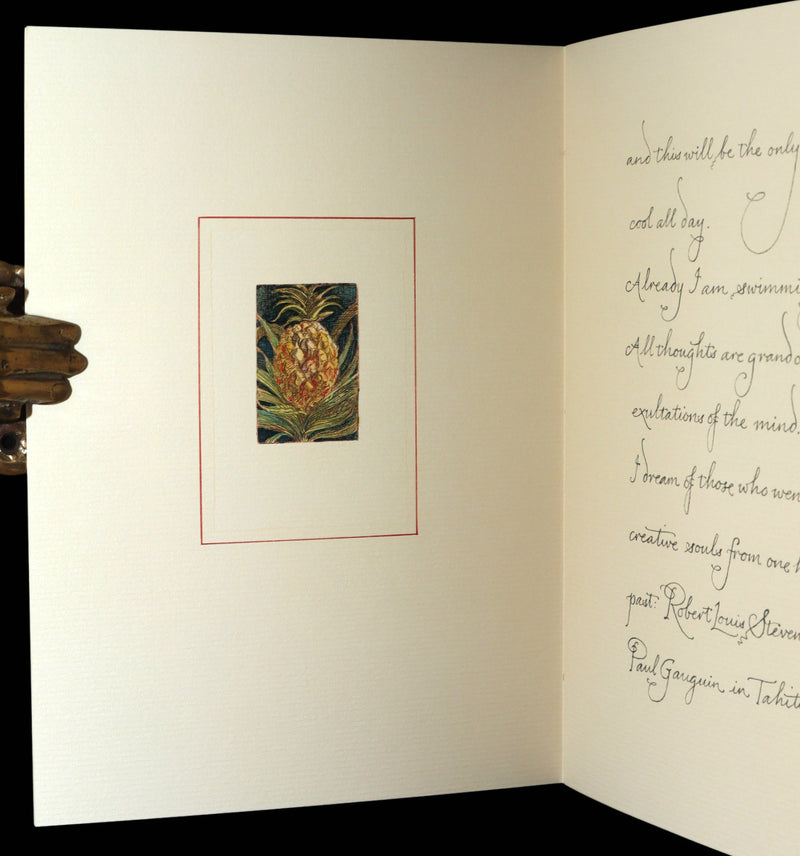 and this will be the only
cool all day.
Already I am swimmi
All thoughts are grand
exultations of the mind.
I dream of those who wen
creative souls from one
past: Robert Louis Steven
Paul Gauguin in Tahit